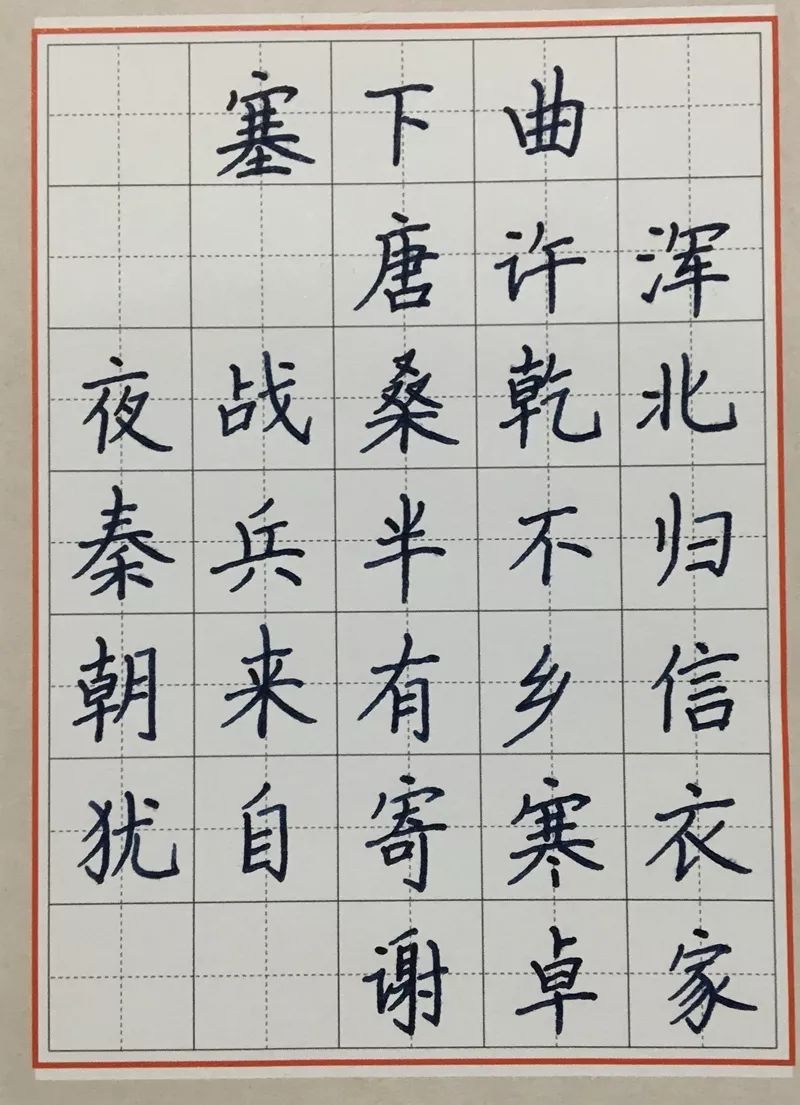 塞下曲
唐许浑
夜战桑乾北
秦兵半不归
朝来有乡信
犹自寄寒衣
谢卓家